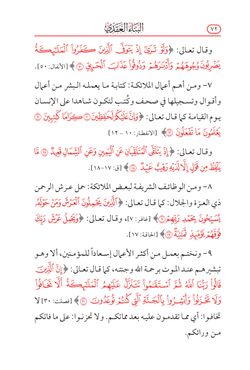 ٧٢
البناء العقدي
وقال تعالى: ﴿وَلَوْ تَرَىٰ إِذْ يَتَوَفَّى الَّذِينَ كَفَرُوا الْمَلَائِكَةُ
يَضْرِبُونَ وُجُوهَهُمْ وَأَدْبَارَهُمْ وَذُوقُوا عَذَابَ الْحَرِيقِ﴾ [الأنفال: ٥٠].
٧- ومن أهم أعمال الملائكة: كتابة ما يعمله البشر من أعمال
وأقوال وتسجيلها في صحف وكُتب لتكون شاهدا على الإنسان
يوم القيامة كما قال تعالى: ﴿وَإِنَّ عَلَيْكُمْ لَحَافِظِينَ ۝ كِرَامًا كَاتِبِينَ ۝
يَعْلَمُونَ مَا تَفْعَلُونَ﴾ [الانفطار: ١٠ - ١٢]
وقال تعالى: ﴿إِذْ يَتَلَقَّى الْمُتَلَقِّيَانِ عَنِ الْيَمِينِ وَعَنِ الشِّمَالِ قَعِيدٌ ۝ مَا
يَلْفِظُ مِن قَوْلٍ إِلَّا لَدَيْهِ رَقِيبٌ عَتِيدٌ﴾ [ق: ١٧-١٨].
٨- ومن الوظائف الشريفة لبعض الملائكة: حمل عرش الرحمن
ذي العزة والجلال: كما قال تعالى: ﴿الَّذِينَ يَحْمِلُونَ الْعَرْشَ وَمَنْ حَوْلَهُ
يُسَبِّحُونَ بِحَمْدِ رَبِّهِمْ﴾ [غافر: ٧]، وقال تعالى: ﴿وَيَحْمِلُ عَرْشَ رَبِّكَ
فَوْقَهُمْ يَوْمَئِذٍ ثَمَانِيَةٌ﴾ [الحاقة: ١٧].
٩- ونختم بعمل من أكثر الأعمال إسعاداً للمؤمنين، ألا وهو
تبشيرهم عند الموت برحمة الله وجنته، كما قال تعالى: ﴿إِنَّ الَّذِينَ
قَالُوا رَبُّنَا اللَّهُ ثُمَّ اسْتَقَامُوا تَتَنَزَّلُ عَلَيْهِمُ الْمَلَائِكَةُ أَلَّا تَخَافُوا
وَلَا تَحْزَنُوا وَأَبْشِرُوا بِالْجَنَّةِ الَّتِي كُنتُمْ تُوعَدُونَ﴾ [فصلت: ٣٠] لا
تخافوا: أي مما تقدمون عليه بعد مماتكم. ولا تحزنوا: على ما فاتكم
من ورائكم.